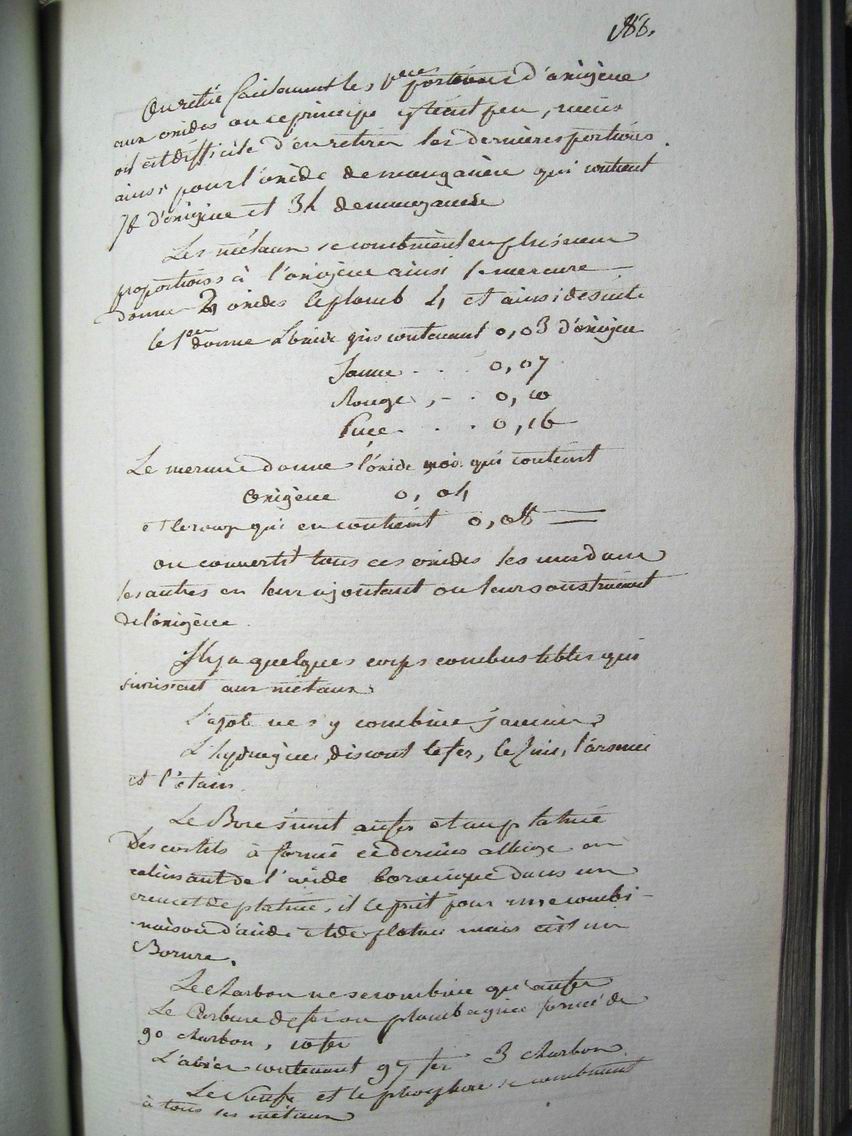 188.
On retire facilement les 1eres portions d'oxigène
aux oxides ou ce principe y tient peu, mais
il est difficile d'en retirer les dernières portions.
ainsi pour l'oxide de manganèse qui contient
d'oxigène et 34 de manganèse
Les métaux se combinent en plusieurs
proportions à l'oxigène ainsi le mercure
donne 2 oxides le plomb 4, et ainsi de suite
le 1er donne l'oxide gris contenant 0,03 d'oxigène
Jaune - - - 0,07
Rouge, - - 0,10
Puce - - - 0,16
Le mercure donne l'oxide noir qui contient
oxigène 0,04
et le rouge qui en contient 0,08
on convertit tous ces oxides les uns dans
les autres en leur ajoutant ou leur soustraient
de l'oxigène.
Il y a quelques corps combustibles qui
s'unissent aux métaux.
L'azote ne s'y combine jamais
L'hydrogène dissout le fer, le zinc, l'arsenic
et l'étain.
Le Bore s'unit au fer et au platine
Descostils à formé ce dernier alliage en
calcinant de l'acide boracique dans un
creuset de platine, il le prit pour une combi-
naison d'acide et de platine mais c'est un
Borure.
Le charbon ne se combine qu'au fer
Le Carbure de fer ou plombagine formé de
90 charbon, 10 fer
L'acier contenant 97 fer 3 charbon.
Le Soufre et le phosphore se combinent
à tous les métaux